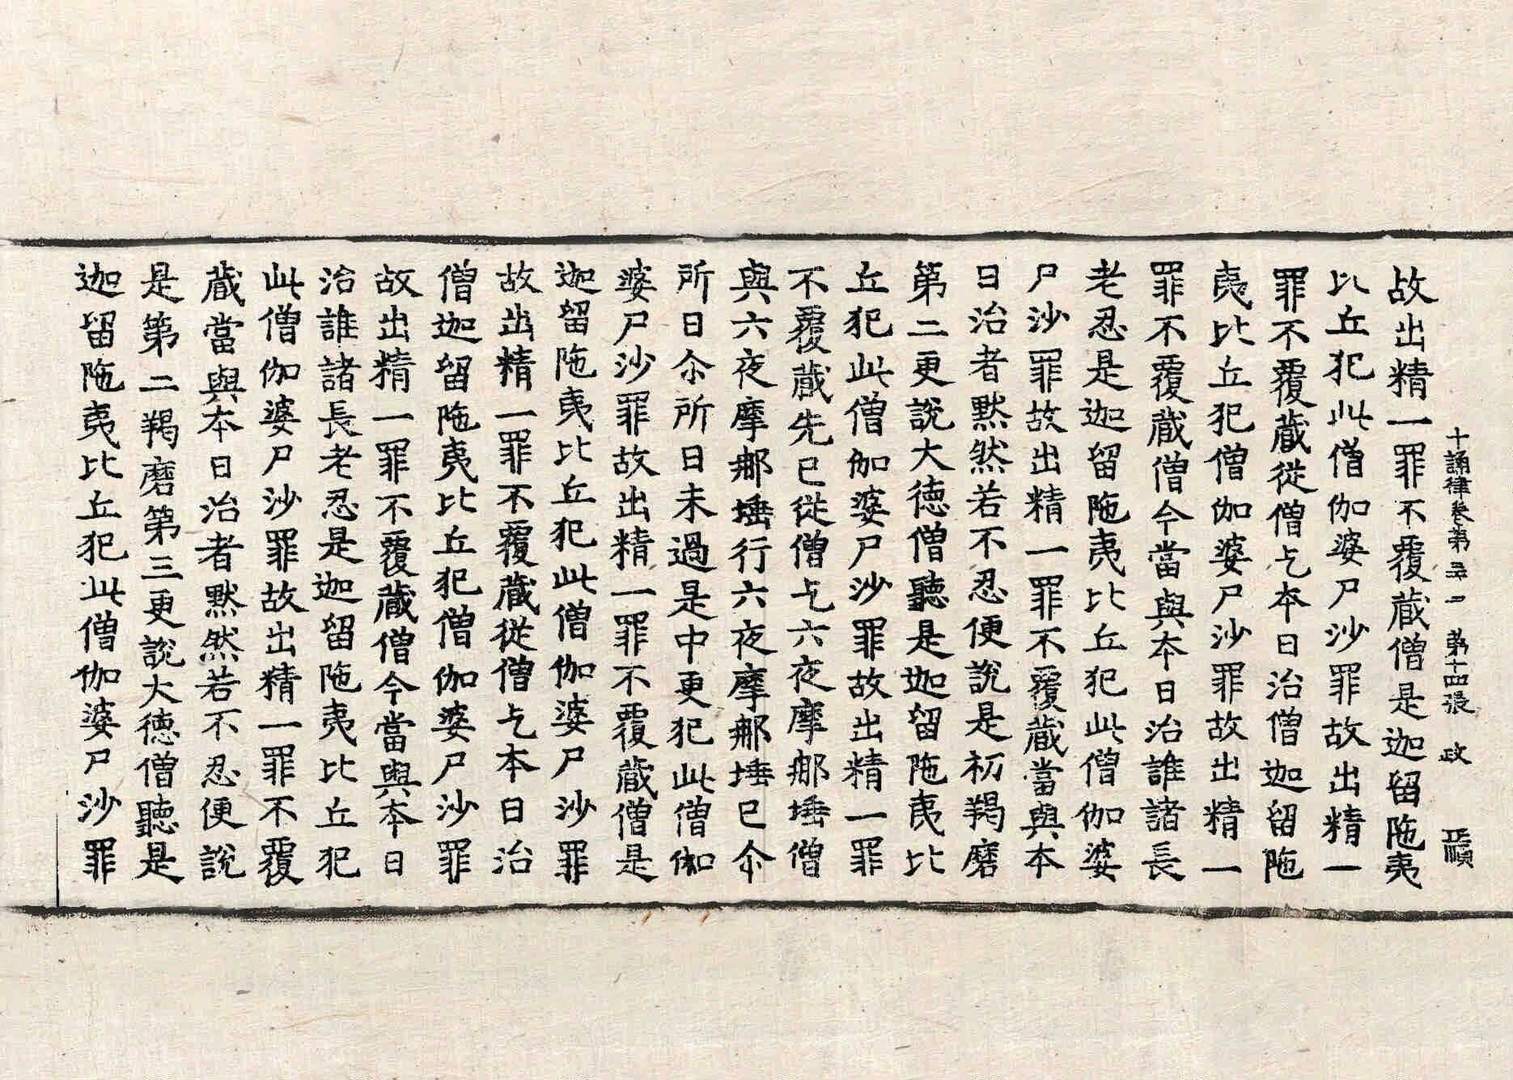 十誦律卷第三二 第十四張 政
故出精一罪不覆藏僧是迦留陁夷
比丘犯此僧伽婆尸沙罪故出精一
罪不覆藏從僧乞夲日治僧迦留陁
夷比丘犯僧伽婆尸沙罪故出精一
罪不覆藏僧今當與夲日治誰諸長
老忍是迦留陁夷比丘犯此僧伽婆
尸沙罪故出精一罪不覆藏當與本
日治者默然若不忍便說是初羯磨
第二更說大德僧聽是迦留陁夷比
丘犯此僧伽婆尸沙罪故出精一罪
不覆藏先已從僧乞六夜摩那埵僧
與六夜摩那埵行六夜摩那埵已尒
所日尒所日未過是中更犯此僧伽
婆尸沙罪故出精一罪不覆藏僧是
迦留陁夷比丘犯此僧伽婆尸沙罪
故出精一罪不覆藏從僧乞本日治
僧迦留陁夷比丘犯僧伽婆尸沙罪
故出精一罪不覆藏僧今當與夲日
治誰諸長老忍是迦留陁夷比丘犯
此僧伽婆尸沙罪故出精一罪不覆
藏當與夲日治者默然若不忍便說
是第二羯磨第三更說大德僧聽是
迦留陁夷比丘犯此僧伽婆尸沙罪